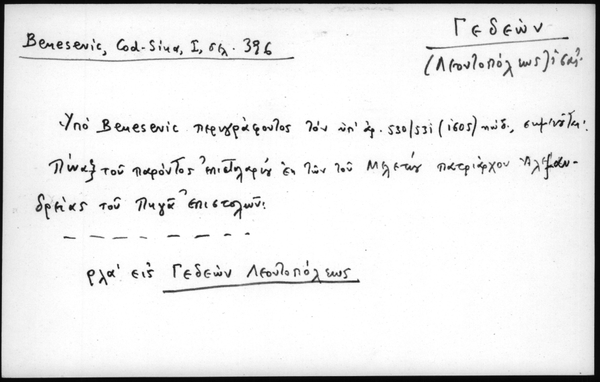 Γεδεών
Benesevic, Cod-Sina, I, σελ. 396
(Λεοντοπόλεως)
Ὑπό Benesevic περιγράφοντος τόν ὑπ' ἀρ. 530/531 (1605) κώδ., σημειοῦται:
Πίναξ τοῦ παρόντος ἐπιστολαρίου ἐκ τῶν τοῦ Μελετίου πατριάρχου Ἀλεξαν-
δρείας τοῦ Πηγᾶ ἐπιστολῶν:
ρλα' εἰς Γεδεών Λεοντοπόλεως